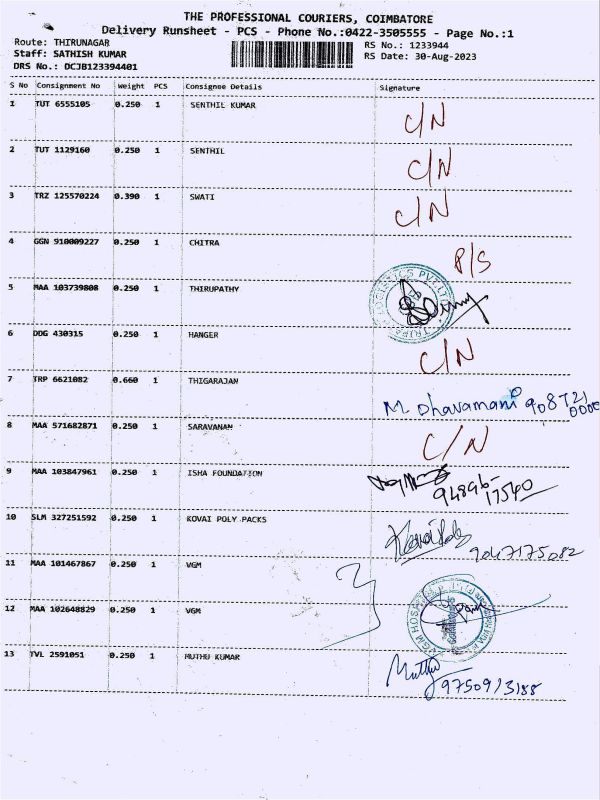 THE PROFESSIONAL COURIERS, COIMBATORE
Delivery Runsheet - PCS - Phone No.:0422-3505555 - Page No.:1
Route: THIRUNAGAR RS No.: 1233944
Staff: SATHISH KUMAR RS Date: 30-Aug-2023
DRS No.: DCJB123394401
S No Consignment No Weight PCS Consignee Details Signature
1 TUT 6555105 0.250 1 SENTHIL KUMAR C/N
2 TUT 1129160 0.250 1 SENTHIL C/N
3 TRZ 125570224 0.390 1 SWATI C/N
4 GGN 910009227 0.250 1 CHITRA P/S
5 MAA 103739808 0.250 1 THIRUPATHY
6 DDG 430315 0.250 1 HANGER C/N
7 TRP 6621082 0.660 1 THIGARAJAN M Dhavamani 908721
0000
8 MAA 571682871 0.250 1 SARAVANAN C/N
9 MAA 103847961 0.250 1 ISHA FOUNDATION 94896-
17540
10 SLM 327251592 0.250 1 KOVAI POLY PACKS 9047175082
11 MAA 101467867 0.250 1 VGM
12 MAA 102648829 0.250 1 VGM
13 TVL 2591051 0.250 1 MUTHU KUMAR Muthu
9750913188